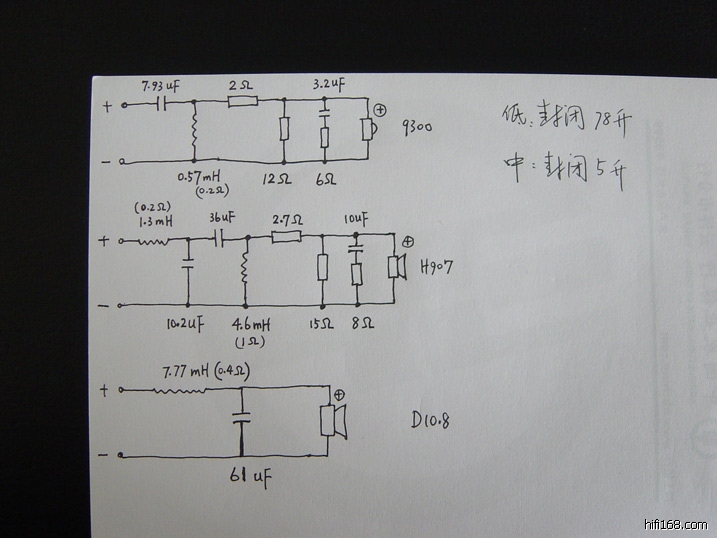 7.93uF 2Ω 3.2uF
+ ⊕ 9300
−
0.57mH 12Ω 6Ω
(0.2Ω)
低:封闭 78升
中:封闭 5升
(0.2Ω) 36uF 2.7Ω 10uF
1.3mH
+ ⊕ H907
−
10.2uF 4.6mH 15Ω 8Ω
(1Ω)
7.77mH (0.4Ω)
+ ⊕ D10.8
−
61uF
hifi168.com